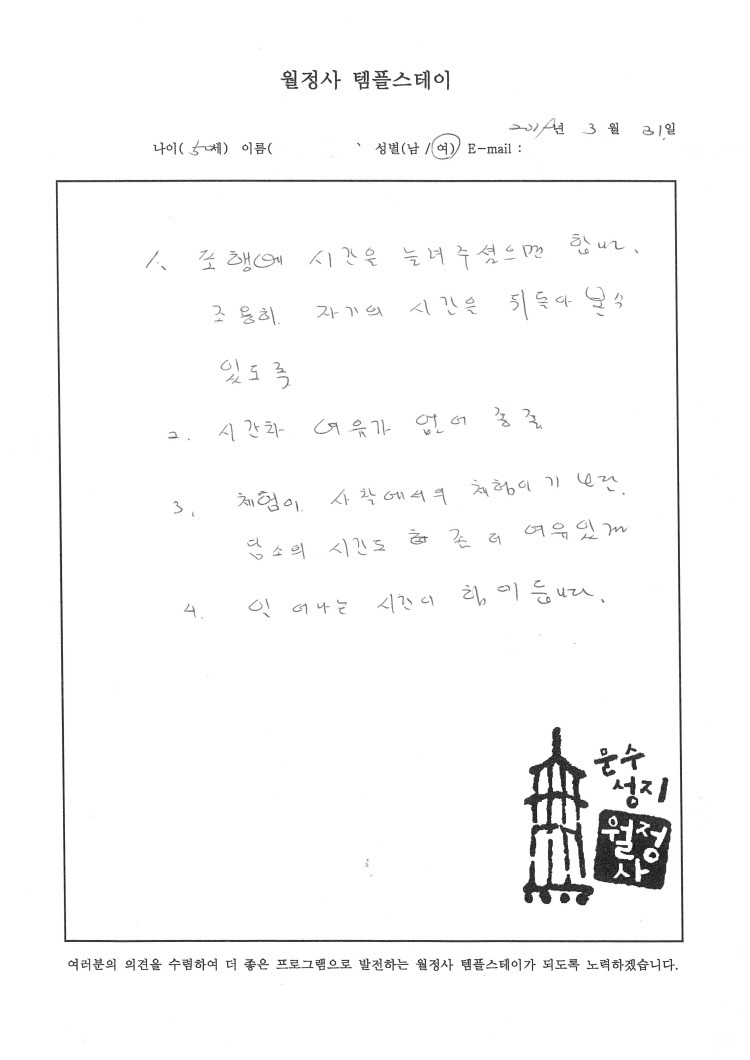 월정사 템플스테이
2014년 3월 31일
나이( 50세) 이름( 성별(남 / 여) E-mail :
1. 포행에 시간을 늘려주셨으면 합니다.
조용히 자기의 시간을 뒤돌아 볼수
있도록
2. 시간화 여유가 없어
3. 체험이 사찰에서의 체험이기 보단
담소의 시간도 존 더 여유있게
4. 일어나는 시간이 힘이듭니다.
문수
성지
월정
사
여러분의 의견을 수렴하여 더 좋은 프로그램으로 발전하는 월정사 템플스테이가 되도록 노력하겠습니다.